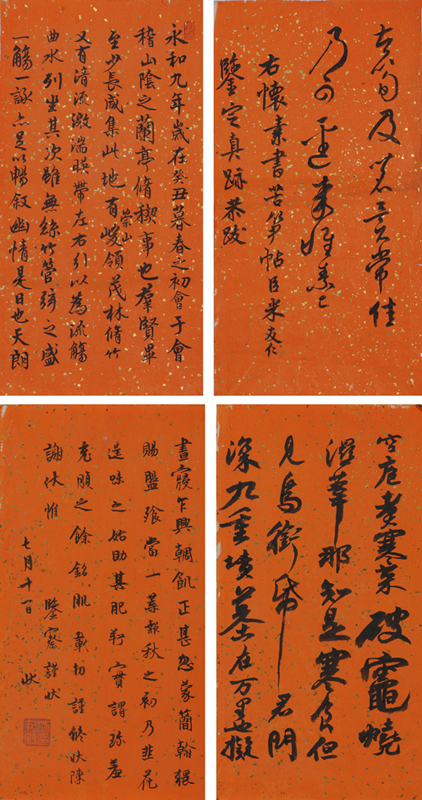 苦笋及茗異常佳
乃可逕來懷素上
右懷素書苦笋帖臣米友仁
鑒定真跡恭跋
永和九年歲在癸丑暮春之初會于會
稽山陰之蘭亭脩稧事也羣賢畢
至少長咸集此地有崇山峻領茂林脩竹
又有清流激湍暎帶左右引以為流觴
曲水列坐其次雖無絲竹管弦之盛
一觴一詠亦足以暢敘幽情是日也天朗
空庖煮寒菜破竈燒
溼葦那知是寒食但
見烏銜帋君門
深九重墳墓在万里也擬
晝寢乍興輖飢正甚忽蒙簡翰猥
賜盤飧當一葉報秋之初乃韭花
逞味之始助其肥羜實謂珍羞
充腹之餘銘肌載切謹修狀陳
謝伏惟
鑒察謹狀
七月十一日 狀